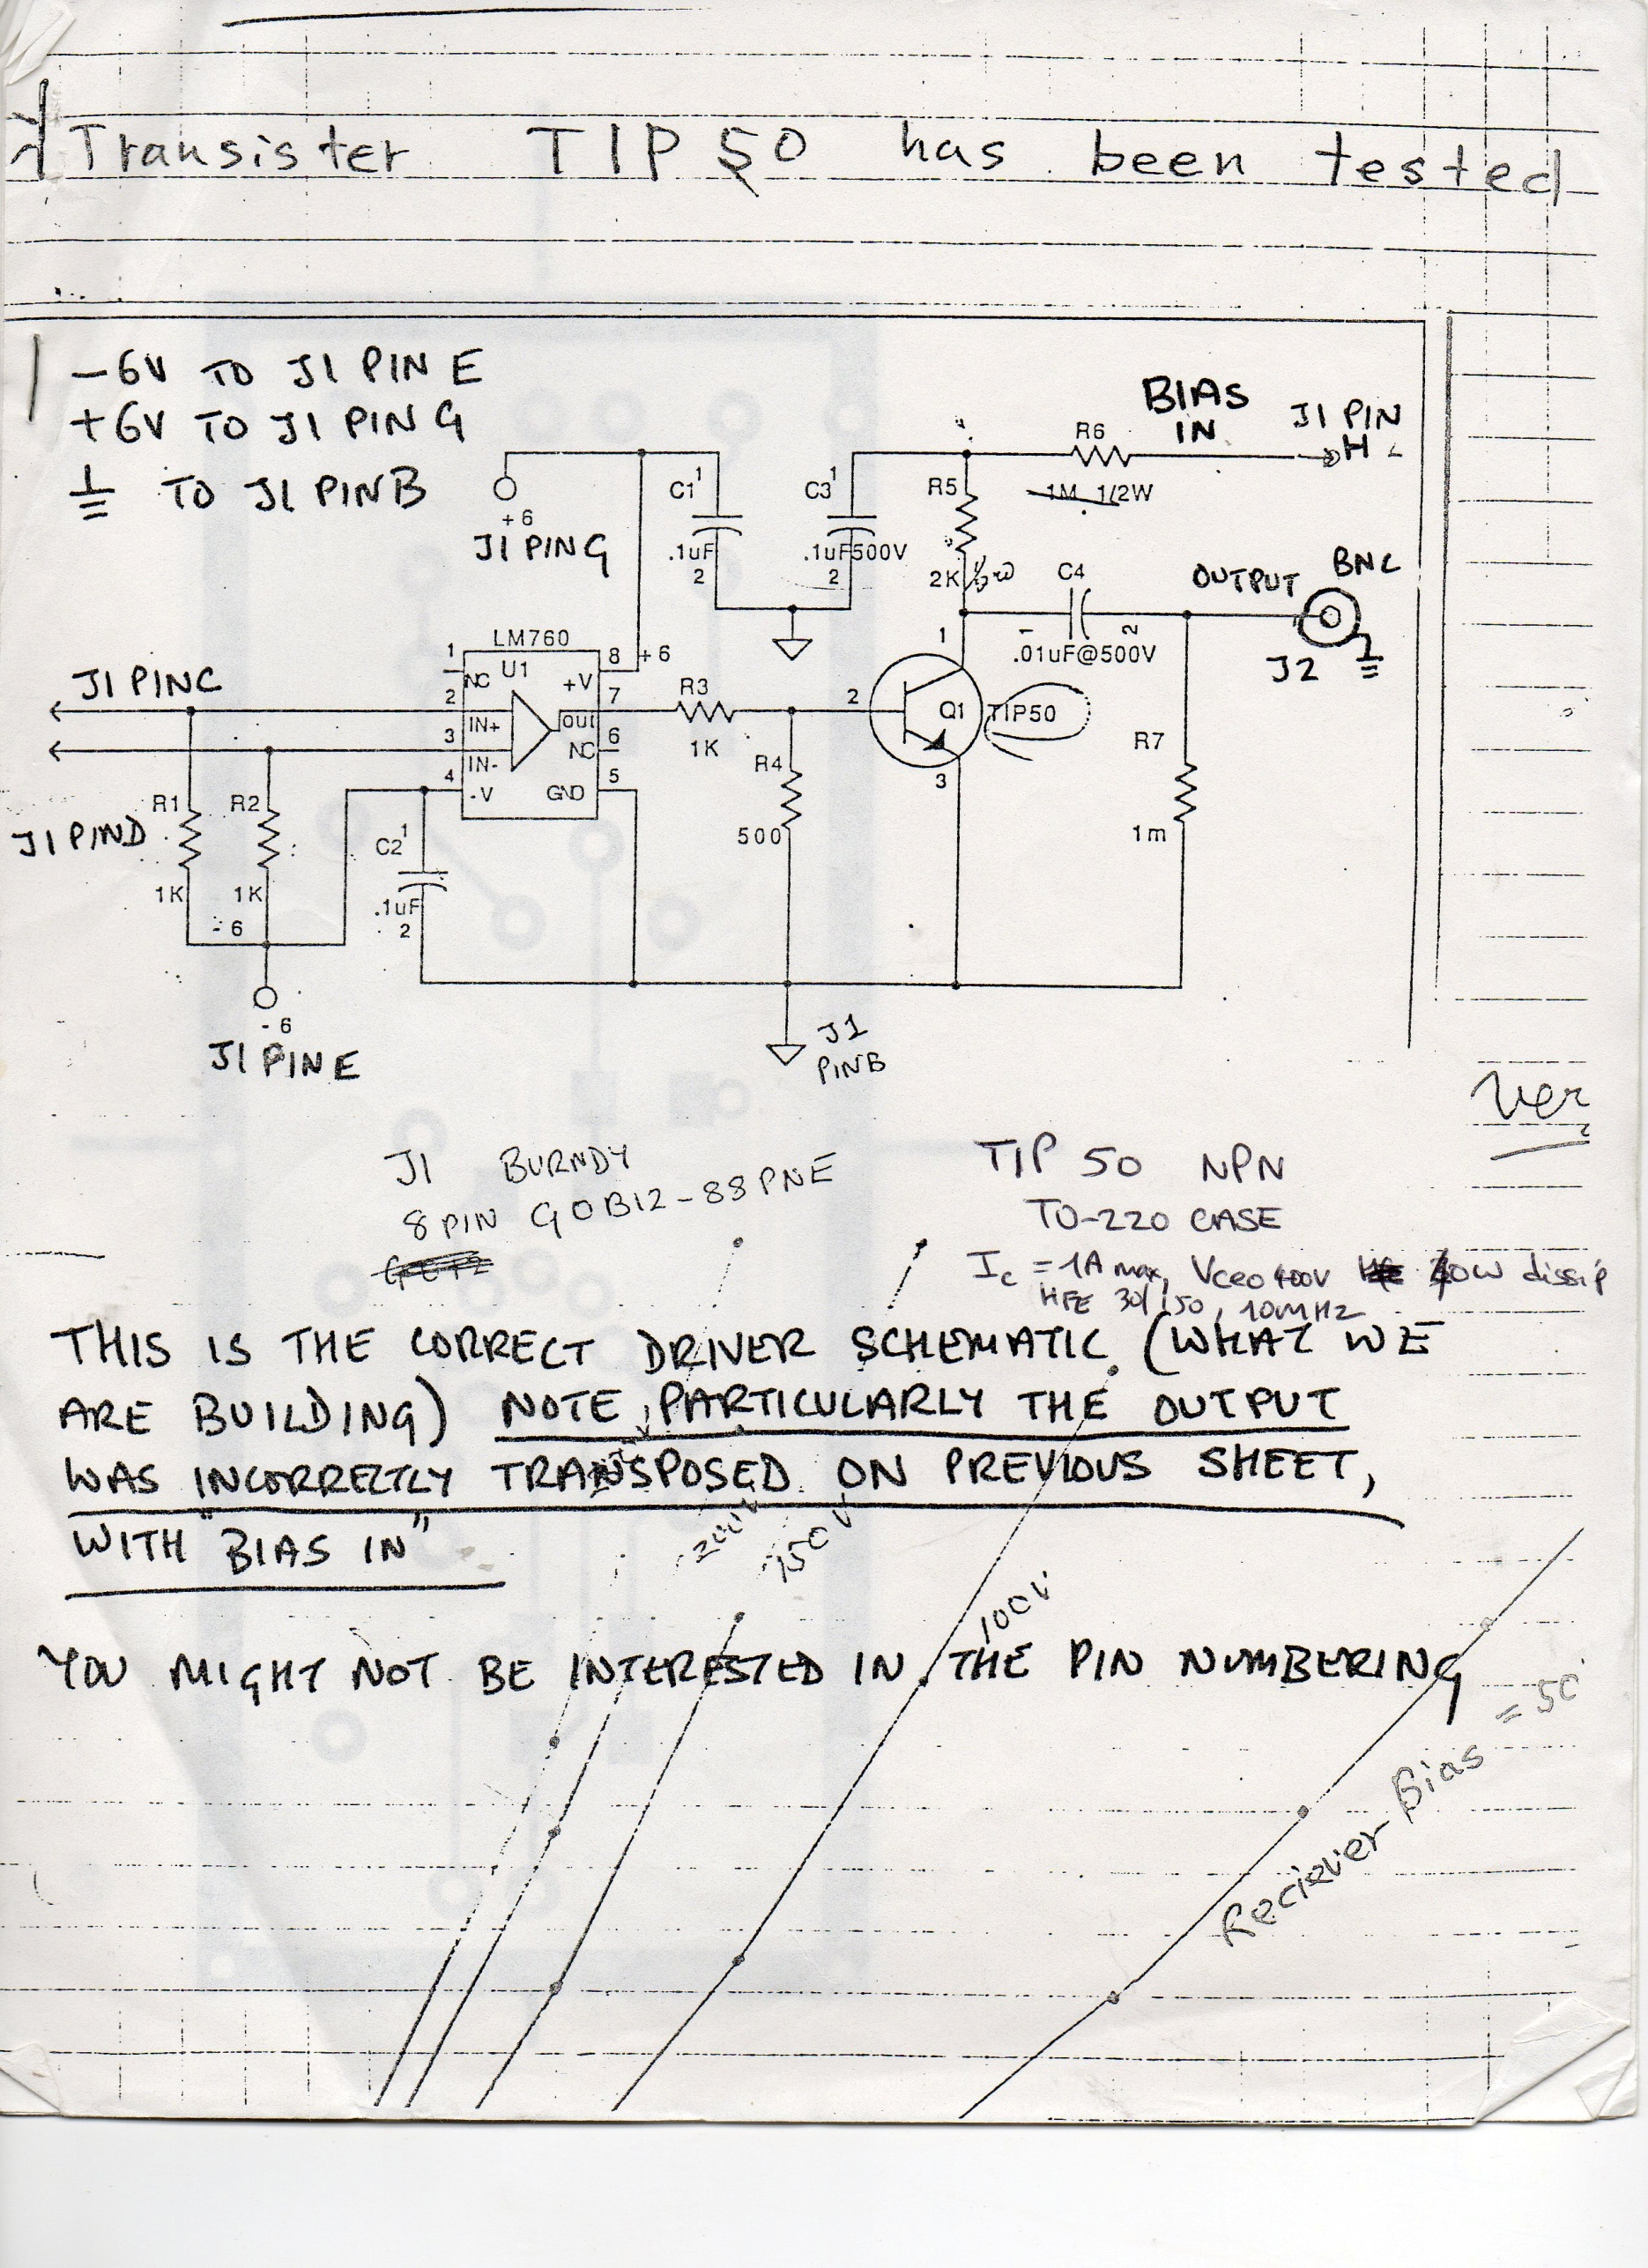 Transister TIP 50 has been tested
-6V TO J1 PIN E
+6V TO J1 PIN G
TO J1 PIN B
BIAS
IN
J1 PIN
H
R6
1M 1/2W
+6
J1 PING
C1
1
.1uF
2
C3
1
.1uF500V
2
R5
2K
C4
1
2
.01uF@500V
OUTPUT
BNC
J2
LM760
U1
1
NC
2
IN+
3
IN-
4
-V
8
+6
+V
7
OUT
6
NC
5
GND
J1 PINC
J1 PIND
R1
1K
R2
1K
-6
C2
1
.1uF
2
R3
1K
R4
500
1
2
3
Q1
TIP50
R7
1m
-6
J1 PINE
J1
PINB
Ver
J1 BURNDY
8 PIN GOB12-88PNE
TIP 50 NPN
TO-220 CASE
Ic = 1A max, VCEO 400V 40W dissip
HFE 30/150, 10MHz
THIS IS THE CORRECT DRIVER SCHEMATIC. (WHAT WE
ARE BUILDING) NOTE, PARTICULARLY THE OUTPUT
WAS INCORRECTLY TRANSPOSED ON PREVIOUS SHEET,
WITH "BIAS IN"
200V
150V
100V
YOU MIGHT NOT BE INTERESTED IN THE PIN NUMBERING
Reciever Bias = 50